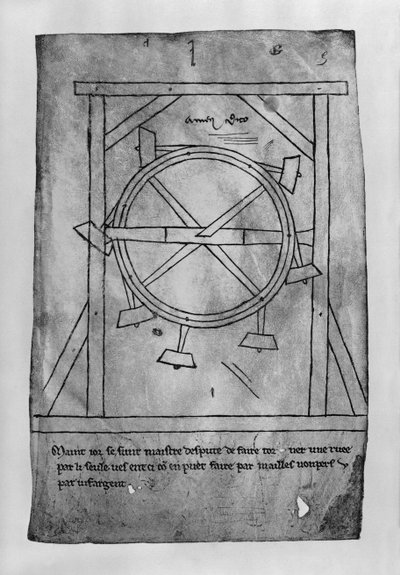 amen dico
Maint ior se sunt maistre despute de faire tor ner une ruee
par li seule ves ent ci cō en puet faire par mailles nonpers
par vifargent